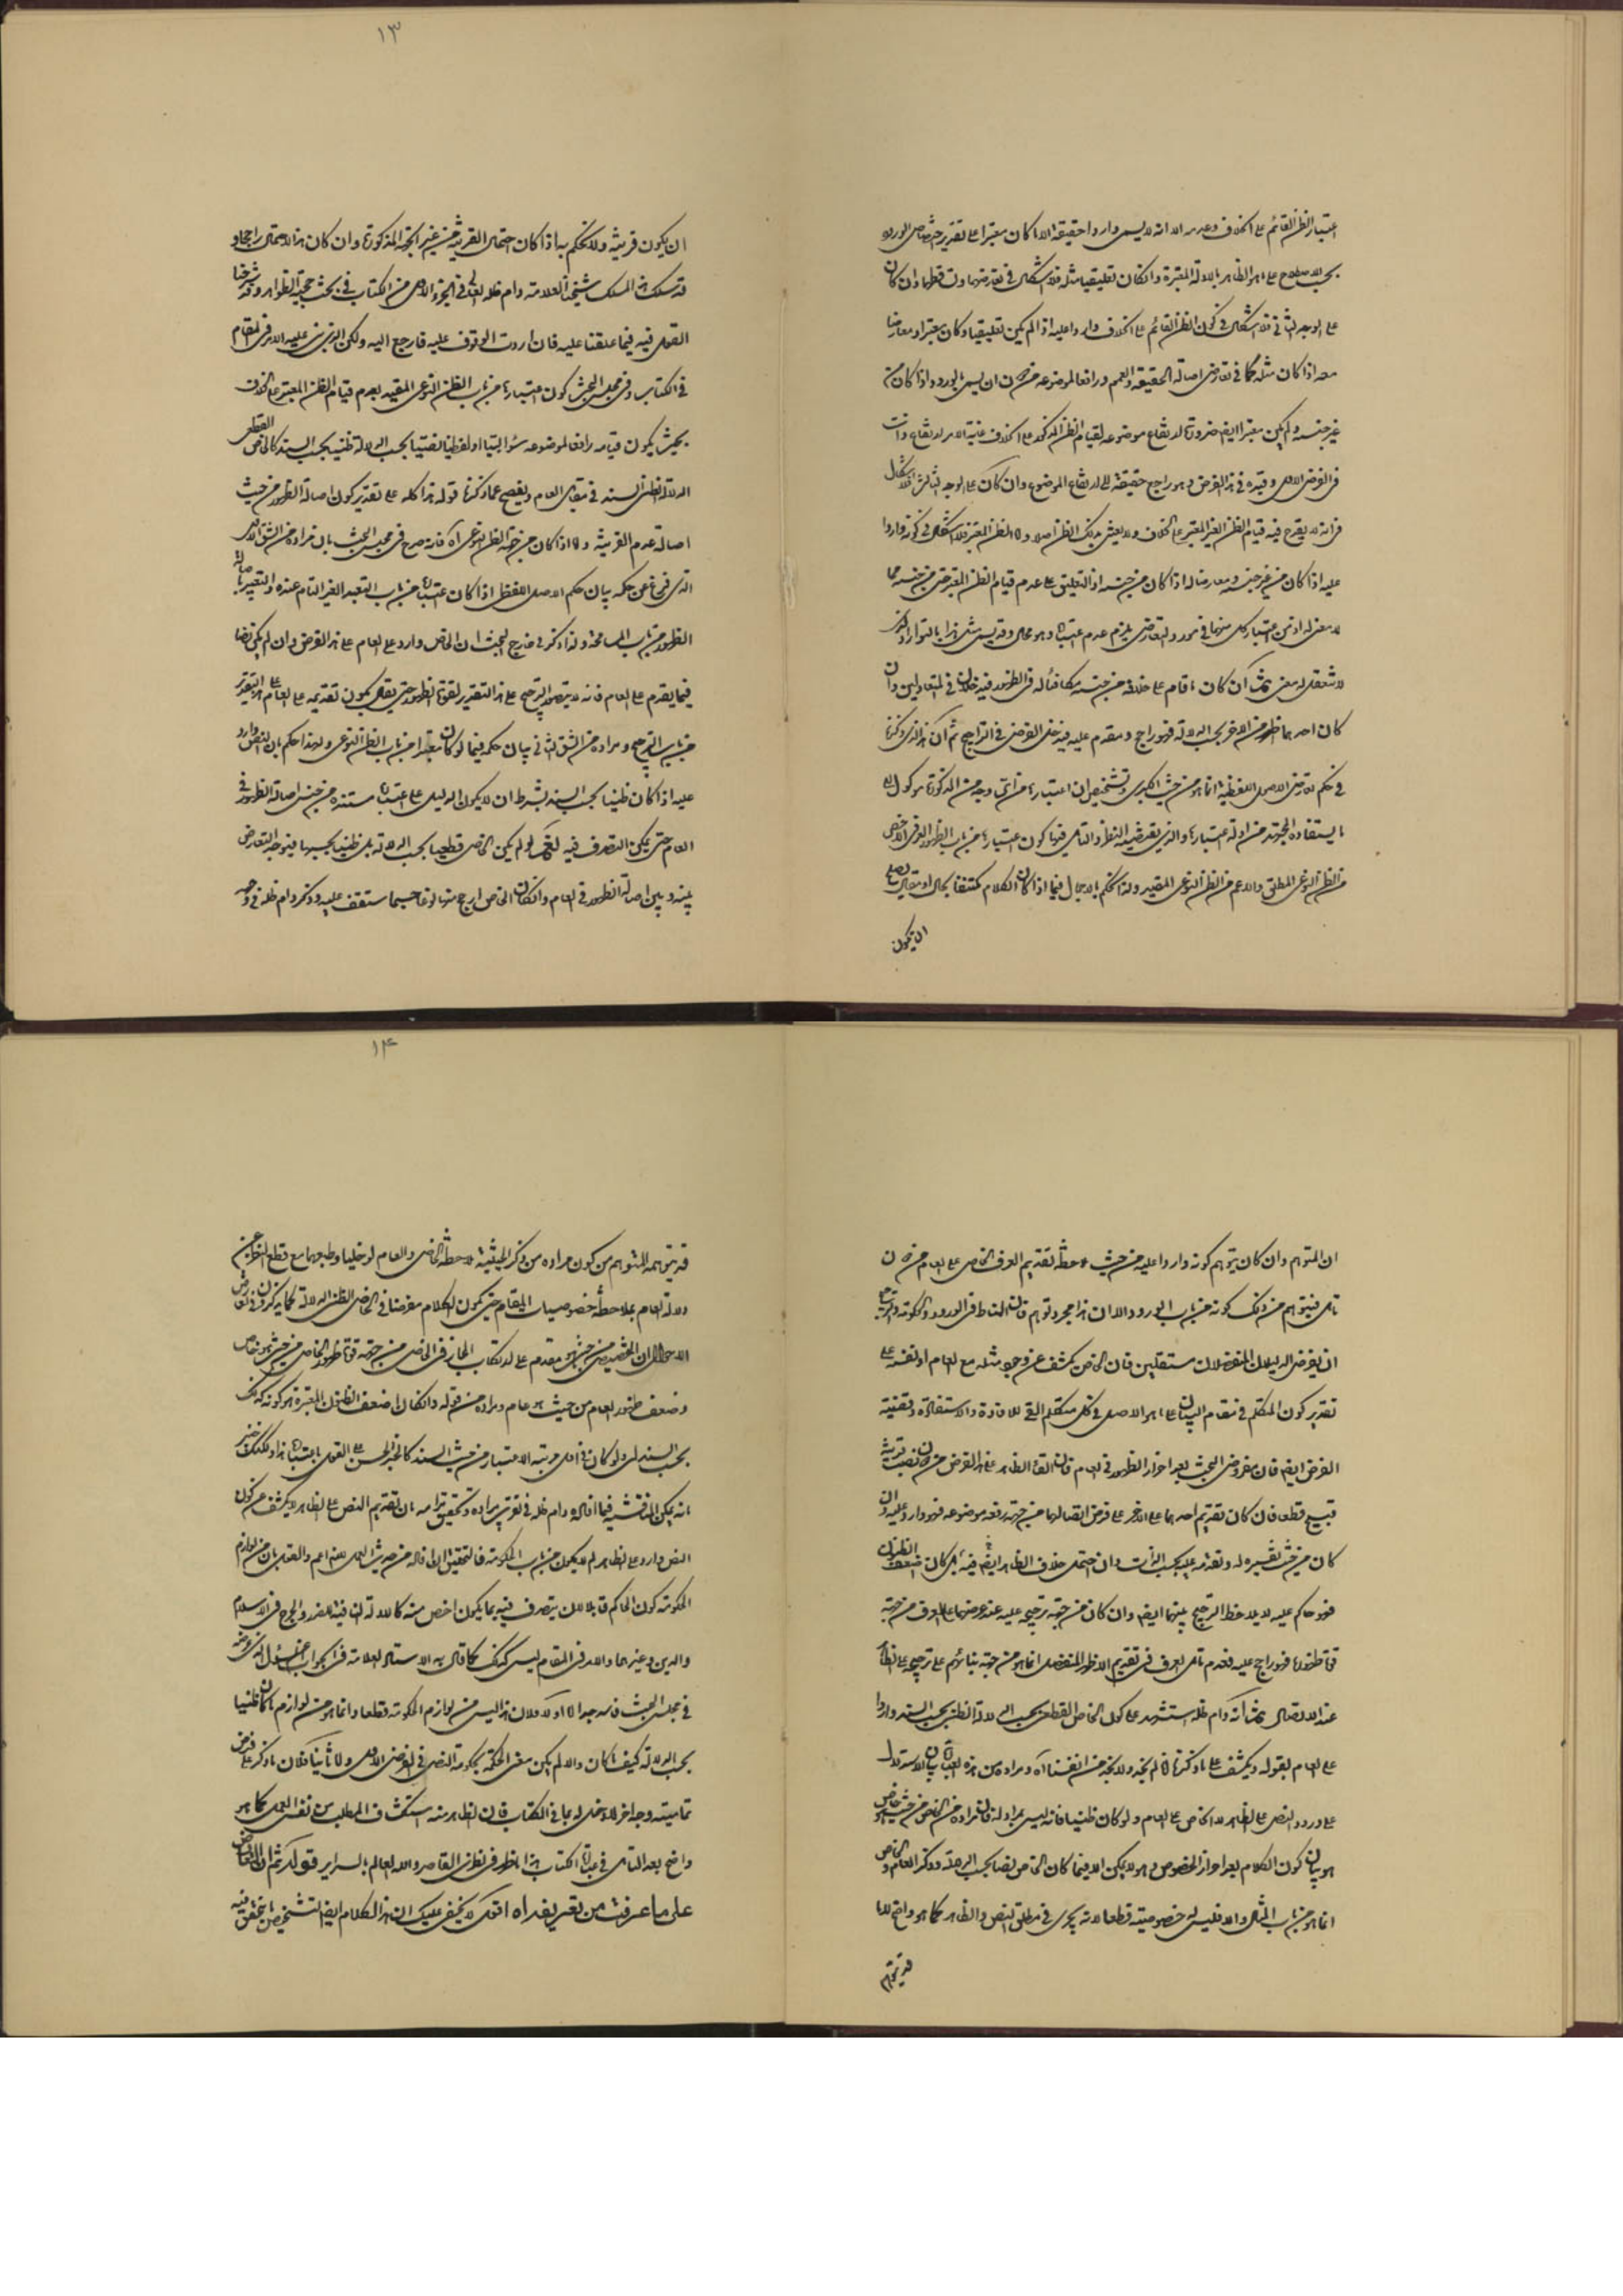 ١٣
اعتبار الظن القائم على الخلاف وعدمه الا انه ليس واردا حقيقة الا اذا كان معتبرا على تقدير
بحسب الاصطلاح على ما هو الظاهر بالادلة المعتبرة وان كان تعليقيا مثله فلا اشكال في تعارضهما وتساقطهما وان كان
على الوجه الثاني فلا اشكال في كون الظن القائم على الخلاف واردا عليه اذا لم يكن تعليقيا وكان معتبرا ومعارضا
معه اذا كان مثله كما في تعارض اصالة الحقيقة والعموم ورافعا لموضوعه من دون ان يسمى بالورود اذا كان من
غير جنسه ولم يكن معتبرا ايضا ضرورة ارتفاع موضوعه لقيام الظن المذكور على الخلاف غاية الامر ارتفاع
في الفرض الاول وغيره في هذا الفرض وهو راجع حقيقة الى ارتفاع الموضوع وان كان على الوجه الثالث فلا اشكال
في انه لا يقدح فيه قيام الظن الغير المعتبر على الخلاف ولا يعتنى بذلك الظن اصلا واما الظن المعتبر فلا اشكال في كونه واردا
عليه اذا كان من غير جنسه ومعارضا له اذا كان من جنسه اذ التعليق على عدم قيام الظن المعتبر حتى من جنسه مما
لا معنى له اذ من اعتبار كل منهما في مورد التعارض يلزم عدم اعتباره وهو محال وقد يسمى مثل هذا بالتوارد
لا نتعقل له معنى ثم ان كان ما قام على خلافه من جنسه مكافئا له في الظهور فيدخلان في المتعادلين وان
كان احدهما اظهر من الآخر بحسب الدلالة فهو راجح ومقدم عليه فيدخل الفرض في التراجيح ثم ان الذي ذكرنا
في حكم تعارض الاصول اللفظية انما هو من حيث الكبرى وتشخيص ان اعتبارها من اي وجه من المذكورة موكول الى
ما يستفاده المجتهد من ادلة اعتبارها والذي يقتضيه النظر والتامل فيها كون اعتبارها من باب الظهور العرفي الاخص
من الظن النوعي المطلق والاعم من الظن النوعي المقيد ولذا نحكم بالاجمال فيما اذا كان الكلام مكتنفا بحال او مقال يصلح
ان يكون
ان يكون قرينة ولا نحكم به اذا كان احتمال القرينة من غير الجهة المذكورة وان كان هذا الاحتمال راجحا و
قد سلك هذا المسلك شيخنا العلامة دام ظله العالي في الجزء الاول من الكتاب في بحث حجية الظواهر وقد شرحنا
القول فيه فيما علقنا عليه فان اردت الوقوف عليه فارجع اليه ولكن الذي بنى عليه الامر في المقام
في الكتاب وفي مجلس البحث كون اعتبارها من باب الظن النوعي المقيد بعدم قيام الظن المعتبر على الخلاف
بحيث يكون قيامه رافعا لموضوعه سواء لبيا او لفظيا قطعيا بحسب الدلالة ظنيا بحسب السند كالخاص القطعي
الدلالة الظني السند في مقابل العام ويفصح عما ذكرنا قوله هذا كله على تقدير كون اصالة الظهور من حيث
اصالة عدم القرينة واما اذا كان من جهة الظن النوعي آه فانه صرح في مجلس البحث بان مراده من الشق الاول
الذي فرغ عن حكمه بيان حكم الاصول اللفظية اذا كان اعتبارها من باب التعبد الغير التام عنده والتعبير باصالة
الظهور من باب المسامحة ولذا ذكر في خارج البحث ان الخاص وارد على العام على هذا الفرض وان لم يكن نصا
فيما يقدم على العام فانه لا يتصور الترجيح على هذا التقدير لقوة الظهور حتى يقال بكون تقديمه على العام على هذا التقدير
من باب الترجيح ومراده من الشق الثاني بيان حكمه فيما لو كان معتبرا من باب الظن النوعي ولهذا حكم بان النص وارد
عليه اذا كان ظنيا بحسب السند بشرط ان لا يكون الدليل على اعتبار سنده من جنس اصالة الظهور في
العام حتى يمكن التصرف فيه نعم لو لم يكن الخاص قطعيا بحسب الدلالة بل ظنيا بحسبها فيتوجه التعارض
بينه وبين اصالة الظهور في العام وان كان الخاص ارجح منه نوعا حسبما ستقف عليه وذكر دام ظله في وجه
١٤
ان المتوهم وان كان يتوهم كونه واردا عليه من حيث ملاحظة تقديم العرف الخاص على العام من دون
تامل فيتوهم من ذلك كونه من باب الورود الا ان هذا مجرد توهم فان المناط في الورود والحكومة والترجيح
ان يفرض الدليلان المنفصلان مستقلين فان الخاص يكشف عن وجود مثله مع العام او نفسه على
تقدير كون المتكلم في مقام البيان على ما هو الاصل في كل متكلم القي للافادة والاستفادة وقضية
الفرض ايضا فان مفروض البحث بعد احراز الظهور في العام فان القاء الظاهر على هذا الفرض من دون نصب قرينة
قبيح قطعا فان كان تقديم احدهما على الآخر على فرض اتصالهما من جهة رفعه موضوعه فهو وارد عليه وان
كان من حيث تفسيره له وتعرضه عليه بحسب الذات وان احتمل خلاف الظاهر ايضا فيه بل كان اضعف الظنون
فهو حاكم عليه لا يلاحظ الترجيح بينهما ايضا وان كان من جهة ترجيحه عليه عند عرضهما على العرف من جهة
قوة ظهوره فهو راجح عليه فعدم تامل العرف في تقديم الاظهر المنفصل انما هو من جهة بنائهم على ترجيحه على الظاهر
عند الاتصال ثم انه دام ظله استشهد على كون الخاص القطعي بحسب الدلالة الظني بحسب السند واردا
على العام بقوله ويكشف عما ذكرنا انا لم نجد ولا نجد من انفسنا آه ومراده من هذه العبارة بيان الاستدلال
على ورود النص على الظاهر لا الخاص على العام ولو كان ظنيا فانه ليس بمراد له فان مراده من الخاص من حيث هو خاص
هو بيان كون الكلام بعد احراز الخصوص وهو لا يمكن الا فيما كان الخاص نصا بحسب الدلالة وذكر العام والخاص
انما هو من باب المثال والا فليس له خصوصية قطعا لانه يجري في مطلق النص والظاهر كما هو واضح
قد يتوهم
قد يتوهمه المتوهم من كون مراده من ذكر الحيثية ملاحظة الخاص والعام لو خليا وطبعهما مع قطع النظر عن
دلالة العام بملاحظة خصوصيات المقام حتى يكون الكلام مفروضا في الخاص الظني الدلالة كما يذكره في تعارض
الاحوال ان التخصيص من حيث هو مقدم على ارتكاب المجاز في الخاص من جهة قوة ظهور الخاص من حيث هو خاص
وضعف ظهور العام من حيث هو عام ومراده من قوله وان كان اضعف الظنون المعتبرة هو كونه كذلك
بحسب السند اي ولو كان في اول مرتبة الاعتبار من حيث السند كالخبر الحسن على القول باعتباره هذا ولكنك خبير
بانه يمكن المناقشة فيما افاده دام ظله في تقريب مراده وتحقيق مرامه بان تقديم النص على الظاهر لا يكشف عن كون
النص واردا على الظاهر لم لا يكون من باب الحكومة فالتحقيق ان ما افاده من حيث الدليل اعم والقول بان من لوازم
الحكومة كون الحاكم قابلا لان يتصرف فيه بما يكون اخص منه كالادلة النافية للضرر والحرج في الاسلام
والدين وغيرهما والامر في المقام ليس كذلك كما قال به الاستاد العلامة في الجواب عن السؤال الذي عرضته
في مجلس البحث فاسد جدا اما اولا فلان هذا ليس من لوازم الحكومة قطعا وانما هو من لوازم ما كان ظنيا
بحسب الدلالة كيف كان والا لم يكن معنى للحكم بحكومة النص في الفرض الاول واما ثانيا فلان ما ذكر على فرض
تماميته وجه آخر لا دخل له بما في الكتاب فان الظاهر منه استكشاف المطلب من نفس العمل كما هو
واضح بعد التامل في عبارة الكتاب هذا ما ظهر في نظري القاصر والله العالم بالسراير قوله ثم ان التعارض
على ما عرفت من تعريفه آه اقول لا يخفى عليك ان هذا الكلام ايضا لتشخيص ما يتحقق فيه